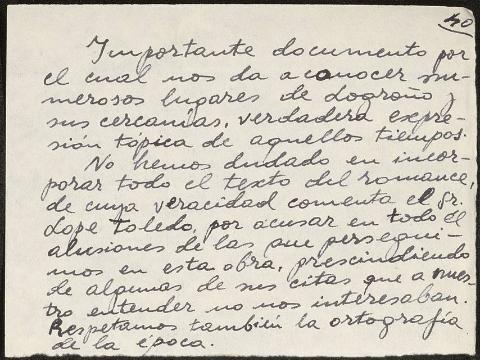 40
Importante documento por
el cual nos da a conocer nu-
merosos lugares de Logroño y
sus cercanías, verdadera expre-
sión tópica de aquellos tiempos.
No hemos dudado en incor-
porar todo el texto del romance,
de cuya veracidad comenta el Sr.
Lope Toledo, por acusar en todo él
alusiones de las que persegui-
mos en esta obra, prescindiendo
de algunas de sus citas que a nues-
tro entender no nos interesaban.
Respetamos también la ortografía
de la época.